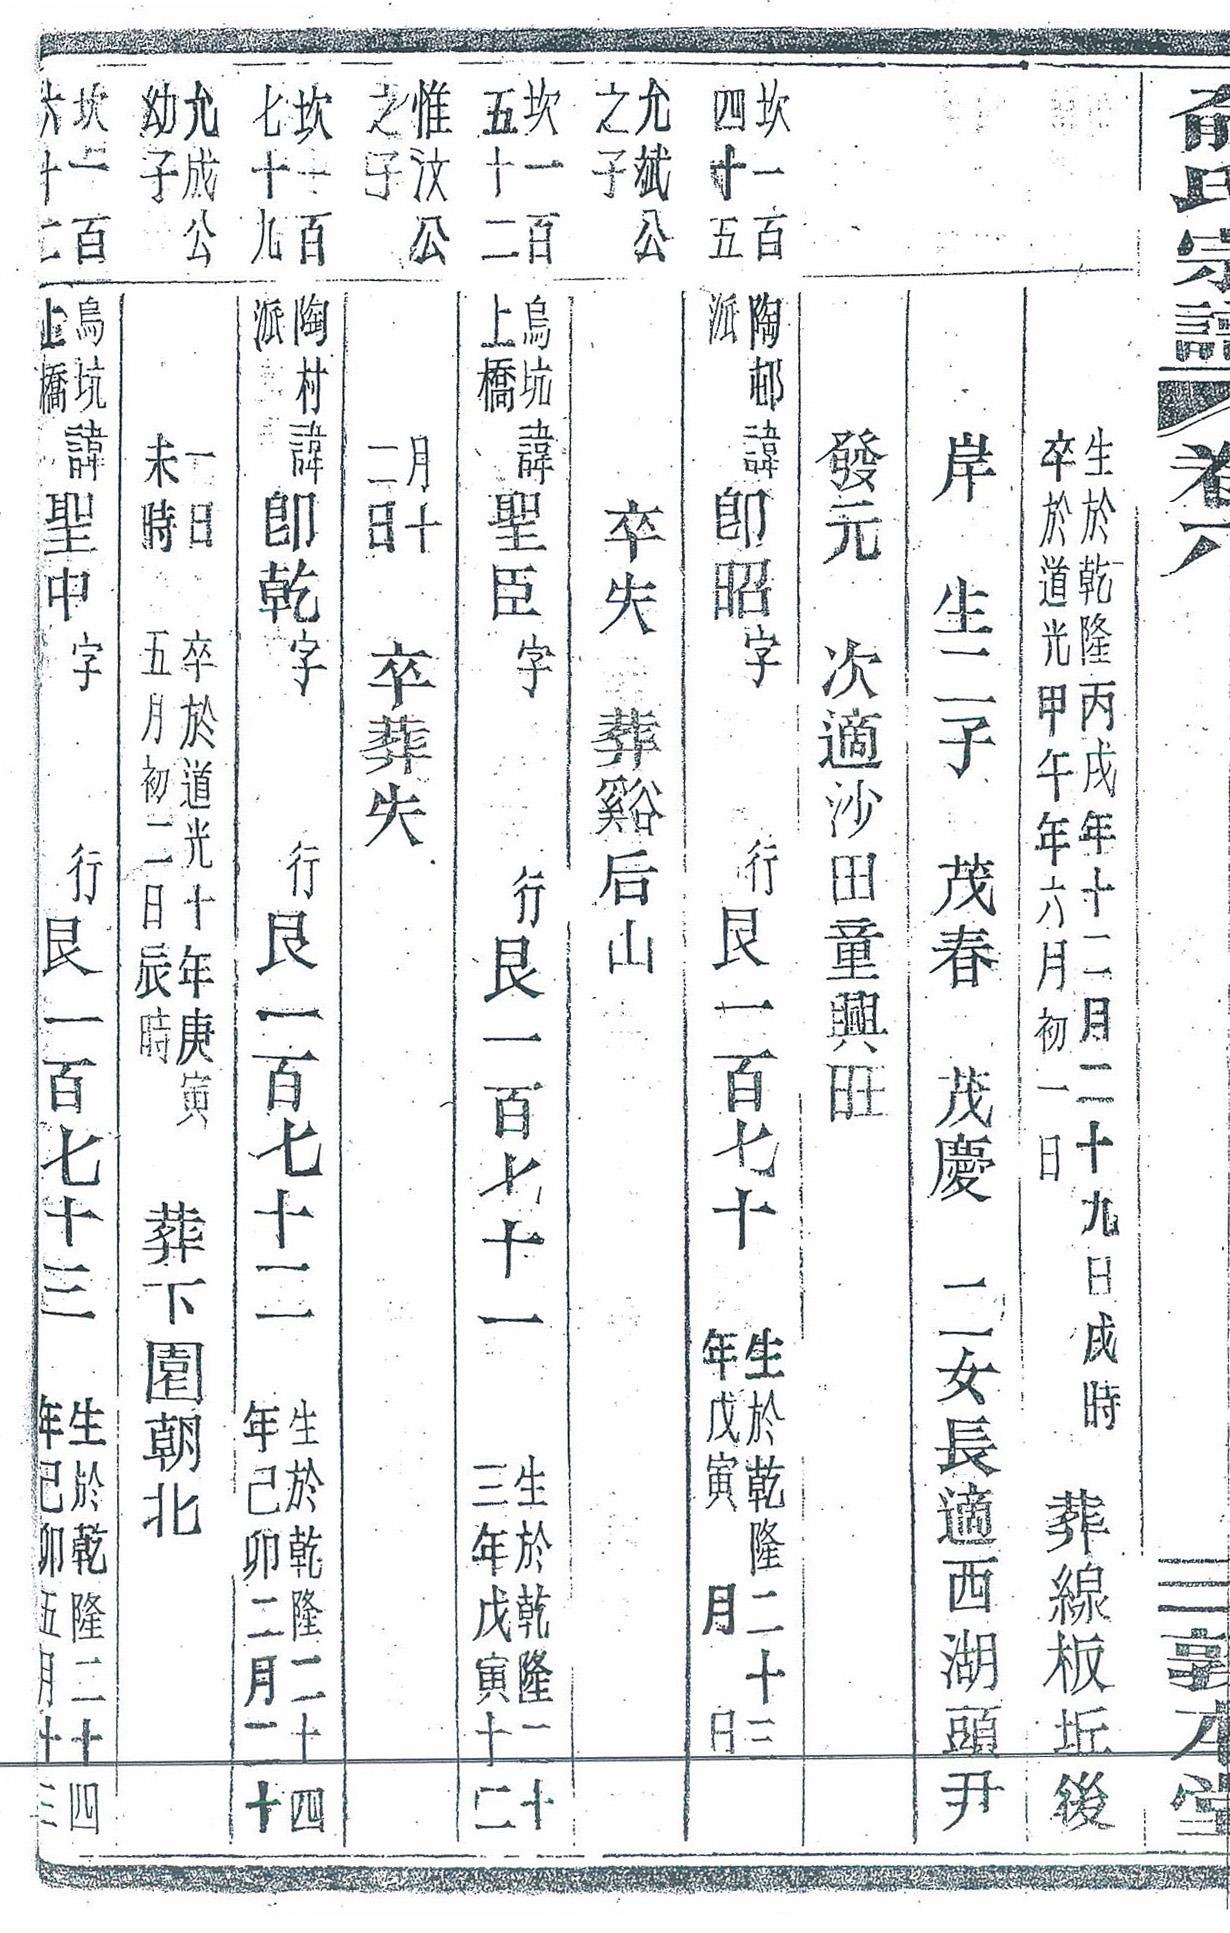 俞氏宗譜 卷六 三 敦本堂
生於乾隆丙戌年十二月二十九日戌時
卒於道光甲午年六月初一日
葬線板坵後
岸 生二子 茂春 茂慶 二女長適西湖頭尹
發元 次適沙田童興旺
坎一百
四十五
陶邨
派
諱卽昭字 行艮一百七十
生於乾隆二十三
年戊寅 月 日
允斌公
之子
卒失 葬谿后山
坎一百
五十二
烏坑
上橋
諱聖臣字 行艮一百七十一
生於乾隆二十
三年戊寅十二
惟汶公
之子
月十
二日
卒葬失
坎一百
七十九
陶村
派
諱卽乾字 行艮一百七十二
生於乾隆二十四
年己卯二月二十
允成公
幼子
一日
未時
卒於道光十年庚寅
五月初二日辰時
葬下園朝北
坎一百
六十二
烏坑
上橋
諱聖中字 行艮一百七十三
生於乾隆二十四
年己卯五月十三